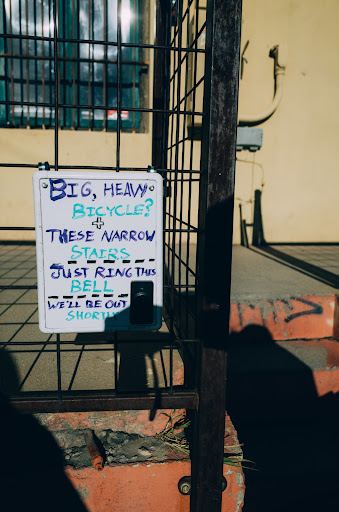 BIG, HEAVY
BICYCLE?
+
THESE NARROW
STAIRS
JUST RING THIS
BELL
WE'LL BE OUT
SHORTLY